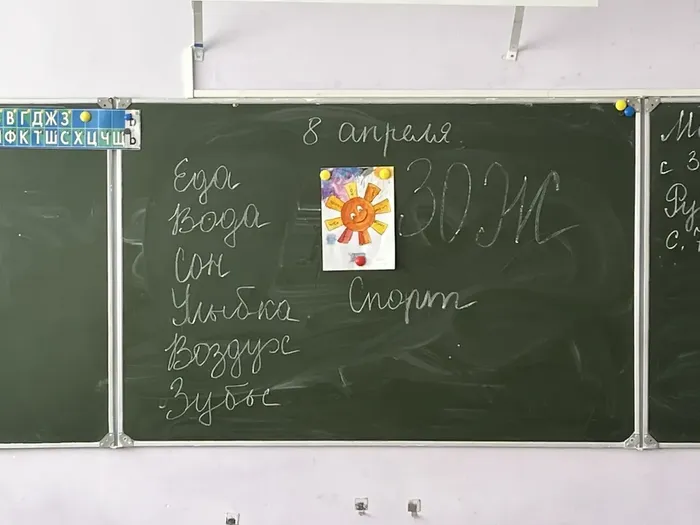 ВГДЖЗ
ФКТШСХЦЧЩ
Ь
Ъ
8 апреля
ЗОЖ
Еда
Вода
Сон
Улыбка
Воздух
Зубы
Спорт
с
с.